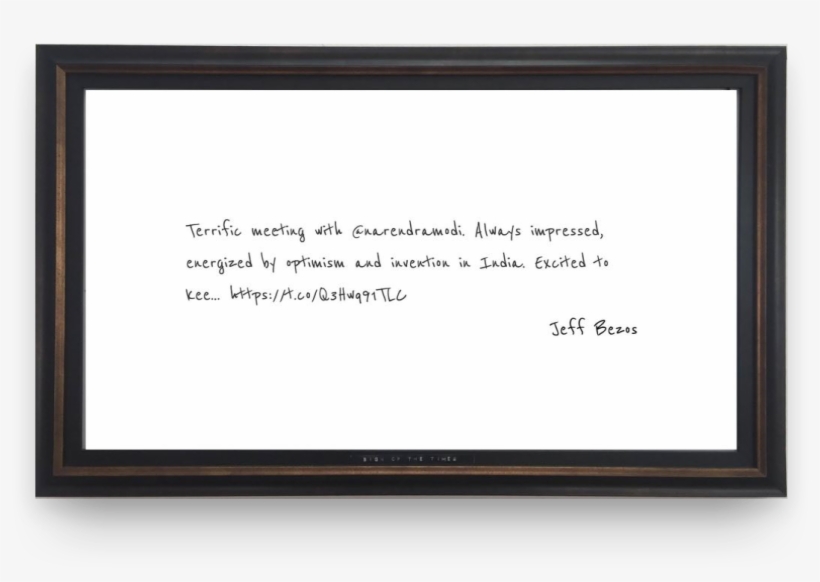 Terrific meeting with @narendramodi. Always impressed,
energized by optimism and invention in India. Excited to
kee... https://t.co/Q3Hwq91TLC
Jeff Bezos
SIGN OF THE TIMES